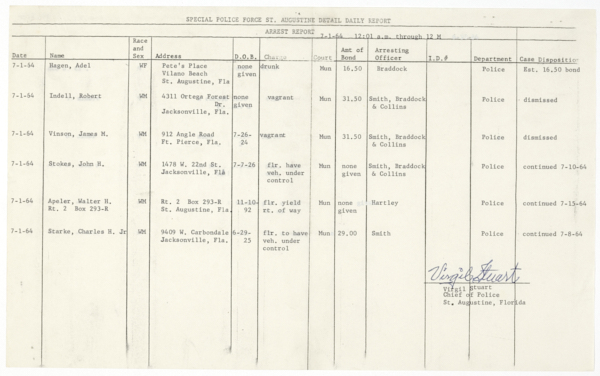 SPECIAL POLICE FORCE ST. AUGUSTINE DETAIL DAILY REPORT
ARREST REPORT 7-1-64 12:01 a.m. through 12 M
Date Name Race and Sex Address D.O.B. Charge Court Amt of Bond Arresting Officer I.D.# Department Case Disposition
7-1-64 Hagen, Adel WF Pete's Place none drunk Mun 16.50 Braddock Police Est. 16.50 bond
Vilano Beach given
St. Augustine, Fla
7-1-64 Indell, Robert WM 4311 Ortega Forest none vagrant Mun 31.50 Smith, Braddock Police dismissed
Dr. given & Collins
Jacksonville, Fla.
7-1-64 Vinson, James M. WM 912 Angle Road 7-26- vagrant Mun 31.50 Smith, Braddock Police dismissed
Ft. Pierce, Fla. 24 & Collins
7-1-64 Stokes, John H. WM 1478 W. 22nd St. 7-7-26 flr. have Mun none Smith, Braddock Police continued 7-10-64
Jacksonville, Fla veh. under given & Collins
control
7-1-64 Apeler, Walter H. WM Rt. 2 Box 293-R 11-10- flr. yield Mun none Hartley Police continued 7-15-64
Rt. 2 Box 293-R St. Augustine, Fla. 92 rt. of way given
7-1-64 Starke, Charles H. Jr WM 9409 W. Carbondale 6-29- flr. to have Mun 29.00 Smith Police continued 7-8-64
Jacksonville, Fla. 25 veh. under
control
Virgil Stuart
Virgil Stuart
Chief of Police
St. Augustine, Florida